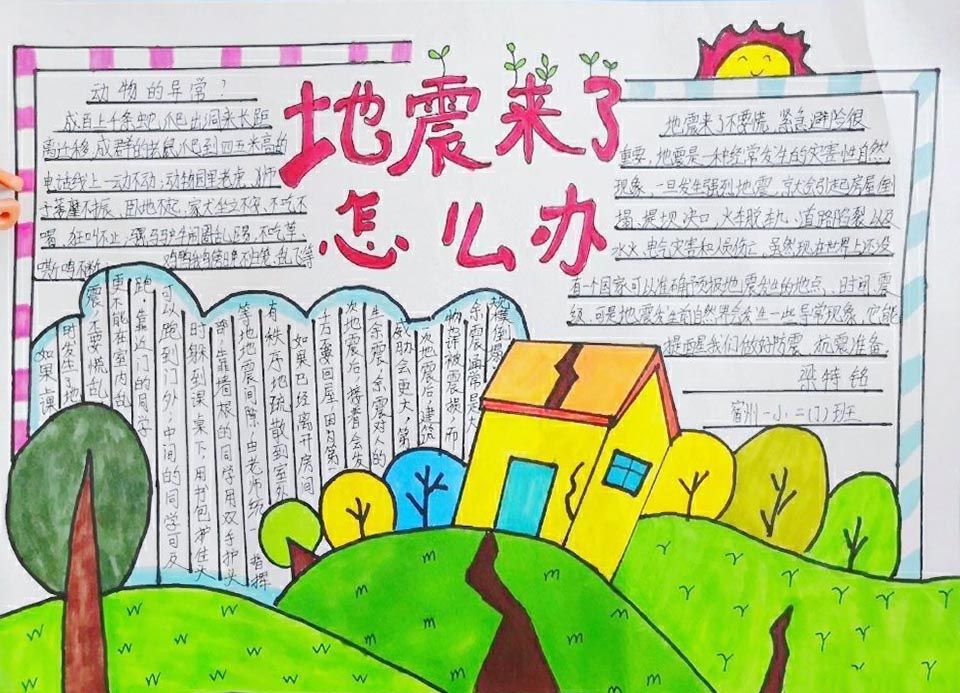 地震来了
怎么办
动物的异常？
成百上千条蛇，爬出洞来长距
离迁移，成群的老鼠爬到四五米高的
电话线上一动不动；动物园里老虎、狮
子萎靡不振、卧地不起，家犬坐立不安、不吃不
喝，狂叫不止；骡马驴牛闹圈乱跑，不吃草、
地震来了不要慌，紧急避险很
重要，地震是一种经常发生的灾害性自然
现象，一旦发生强烈地震，就会引起房屋倒
塌、堤坝决口，火车脱轨、道路陷裂以及
水火、电气灾害和人员伤亡，虽然现在世界上还没
有一个国家可以准确预报地震发生的地点、时间、震
级，可是地震发生前自然界会发生一些异常现象，它能
提醒我们做好防震、抗震准备
梁特铭
宿州一小二(7)班
如果上课
时发生了地
震，不要慌乱，
更不能在室内乱
跑，靠近门的同学
可以跑到门外，中间的同学可及
时躲到课桌下，用书包护住头
部；靠墙根的同学用双手护头
等地震间隙，由老师统一指挥
有秩序地疏散到室外
如果已经离开房间
千万不要回屋，因为第一
次地震后，接着会发
生余震，余震对人的
威胁会更大，第
一次地震后，建筑
物也许被震损，而
余震通常是大
规模倒塌